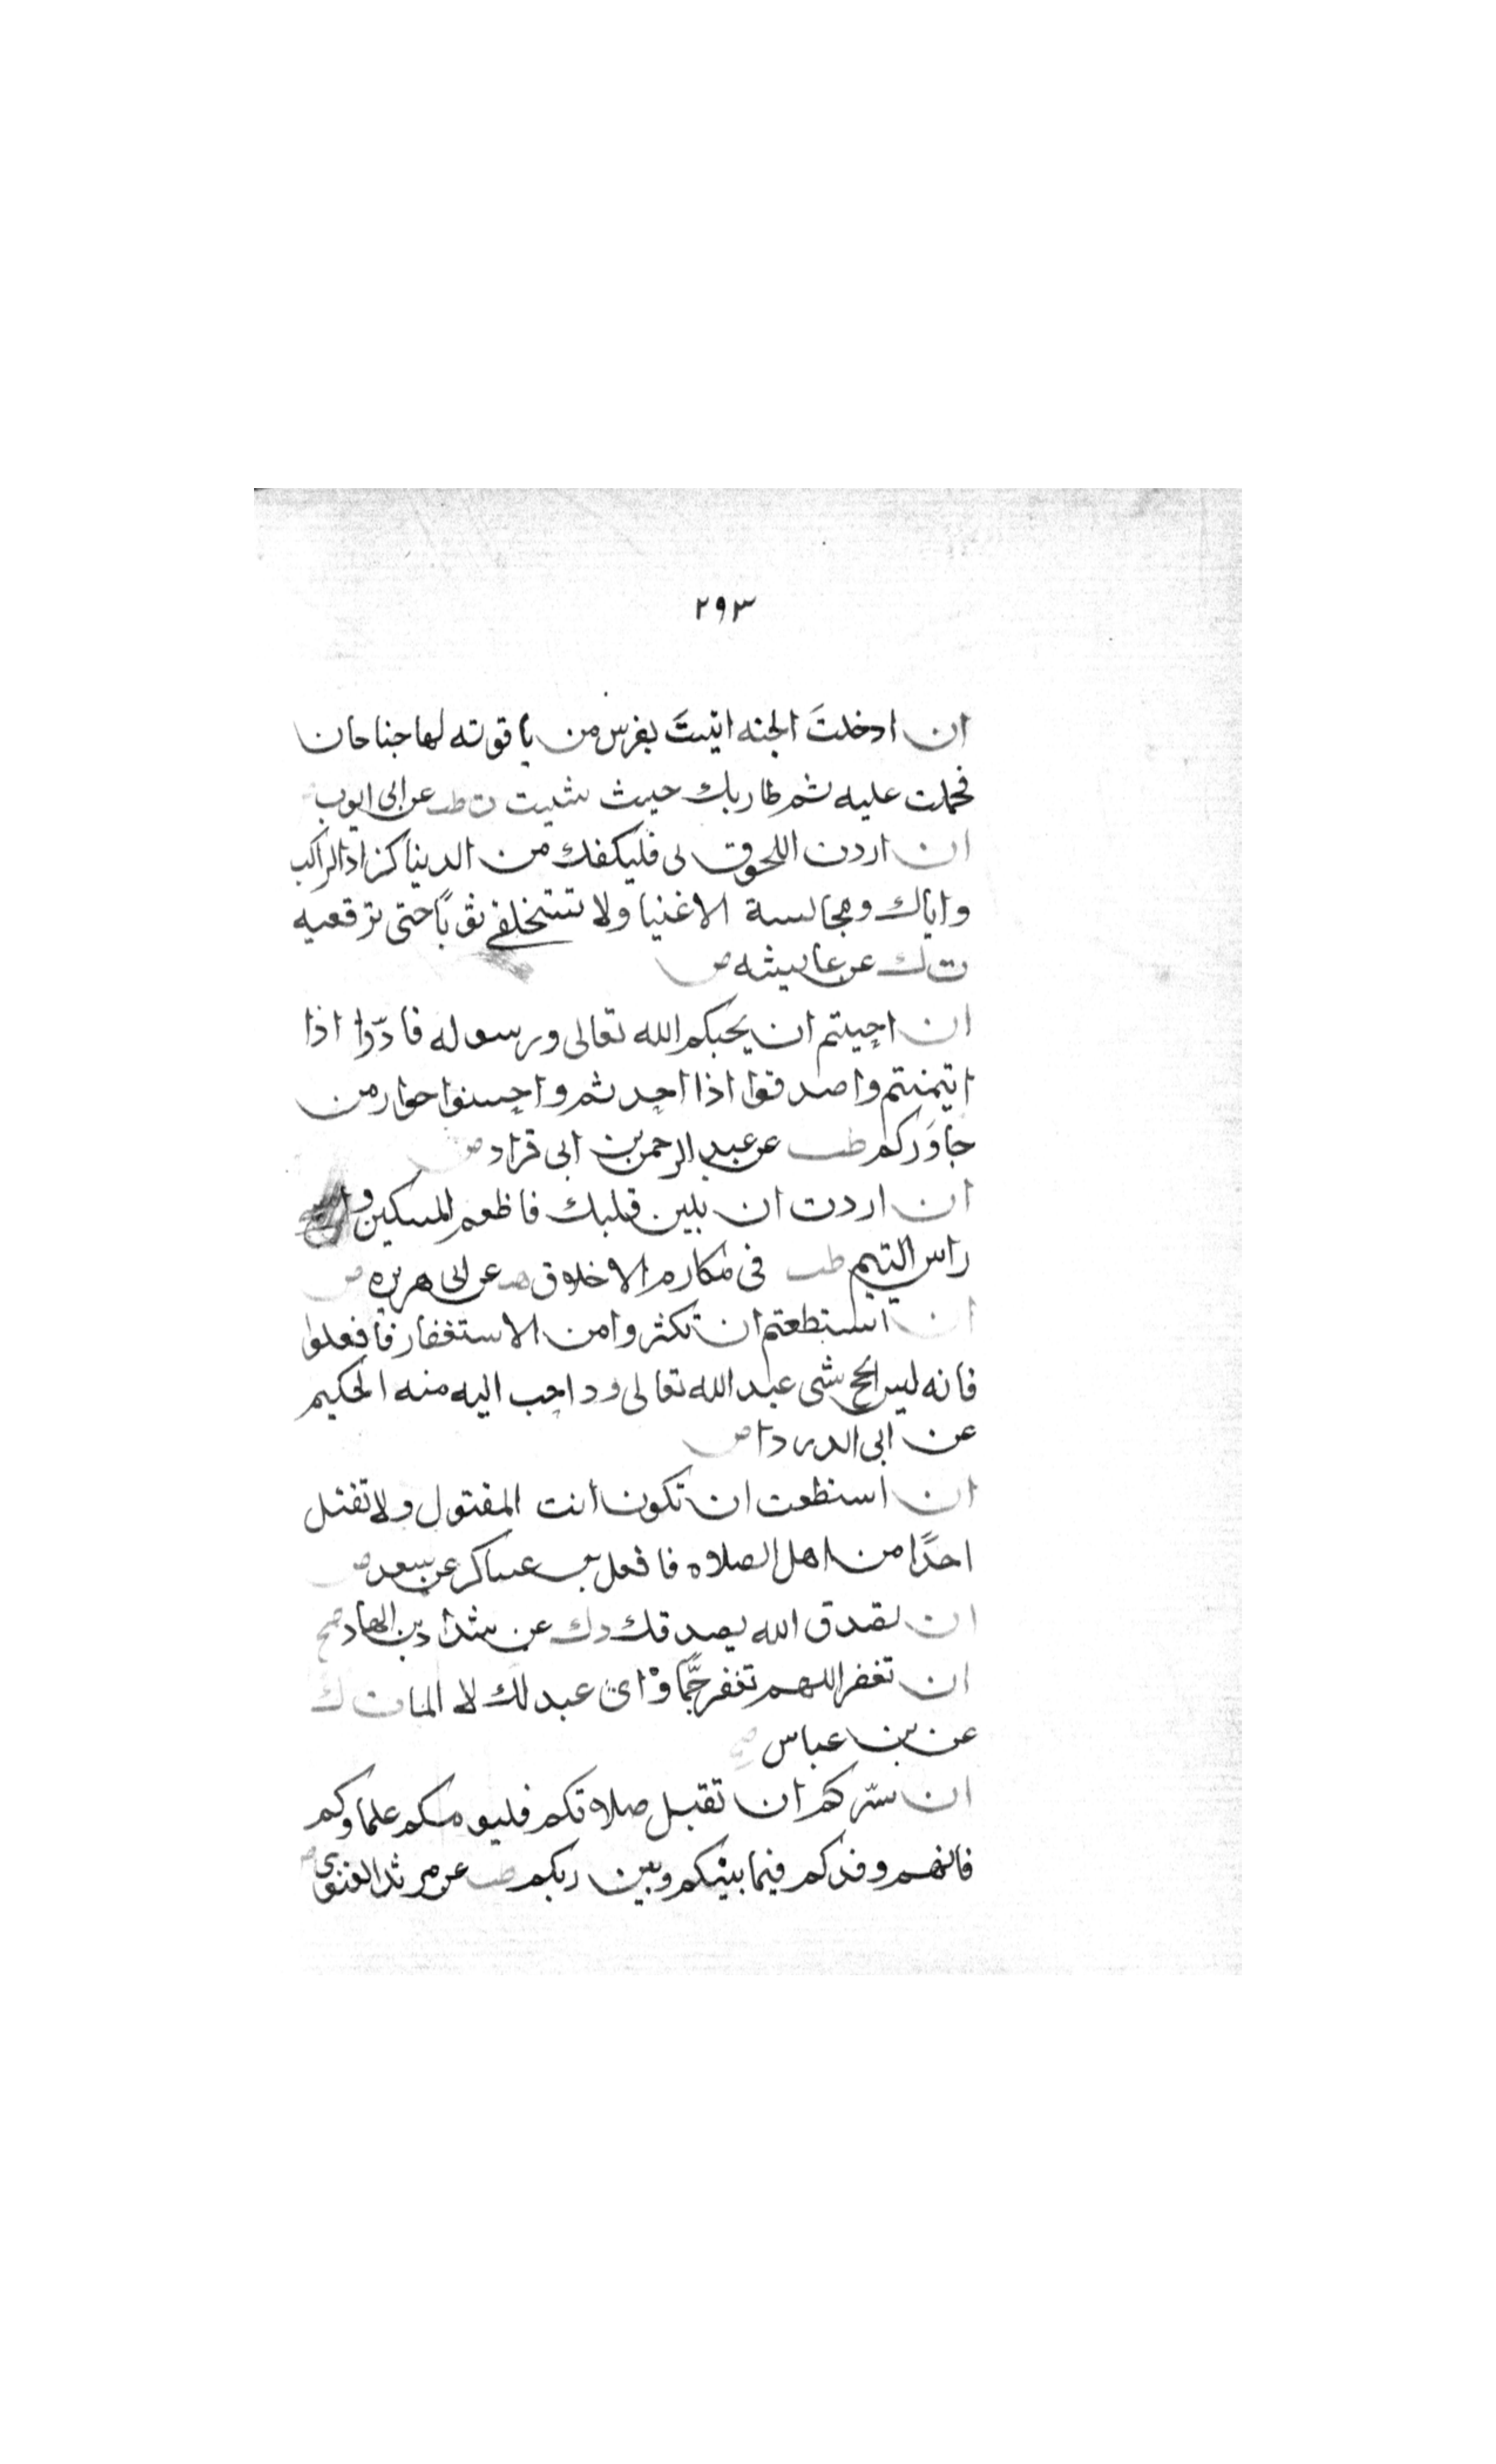 ٢٩٣
ان ادخلتَ الجنه اتيتَ بفرس من ياقوته لها جناحان
فحملت عليه ثم طار بك حيث شيت ت طب عن ابى ايوب
ان اردت اللحوق بى فليكفك من الدنيا كزاد الراكب
واياك ومجالسة الاغنيا ولا تستخلفى ثوبًا حتى ترقعيه
ت ك عن عايشه ض
ان احببتم ان يحبكم الله تعالى ورسوله فادّوا اذا
ايتمنتم واصدقوا اذا احدثم واحسنوا جوار من
جاوَركم طب عن عبد الرحمن بن ابى قراد ض
ان اردت ان يلين قلبك فاطعم المسكين و
راس اليتيم طب فى مكارم الاخلاق هب عن ابى هريره ض
ان استطعتم ان تكثروا من الاستغفار فافعلوا
فانه ليس انجح شى عبد الله تعالى ود احب اليه منه الحكيم
عن ابى الدردا ض
ان استطعت ان تكون انت المقتول ولا تقتل
احدًا من اهل الصلاه فافعل بن عساكر عن سعد ض
ان تصدق الله يصدقك ن ك عن شداد بن الهاد صح
ان تغفر اللهم تغفر جمًّا واى عبد لك لا الما ت ك
عن بن عباس صح
ان سرّكم ان تقبل صلاتكم فليومكم علماوكم
فانهم وفدكم فيما بينكم وبين ربكم طب عن مرثد الغنوى ض